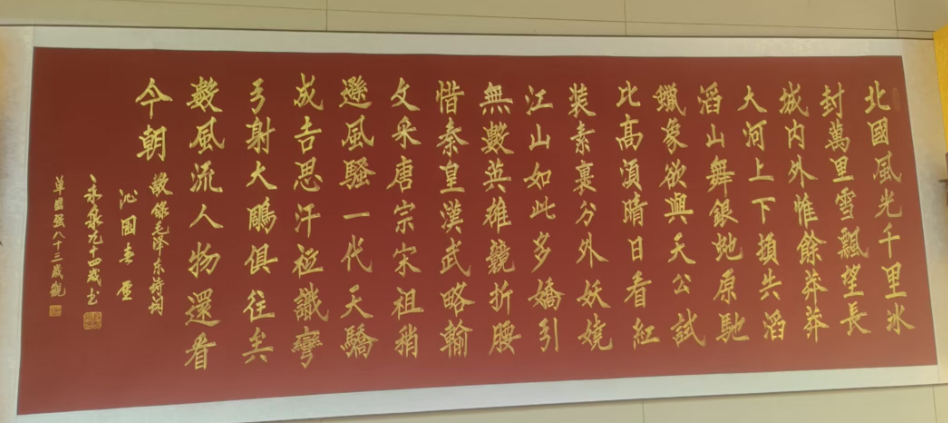 北國風光千里冰
封萬里雪飄望長
城内外惟餘莽莽
大河上下頓失滔
滔山舞銀蛇原馳
蠟象欲與天公試
比高須晴日看紅
裝素裹分外妖嬈
江山如此多嬌引
無數英雄競折腰
惜秦皇漢武略輸
文采唐宗宋祖稍
遜風騷一代天驕
成吉思汗衹識彎
弓射大鵰俱往矣
數風流人物還看
今朝
敬錄毛澤東詩詞
沁園春
永泉九十四歲書
單國強八十三歲觀